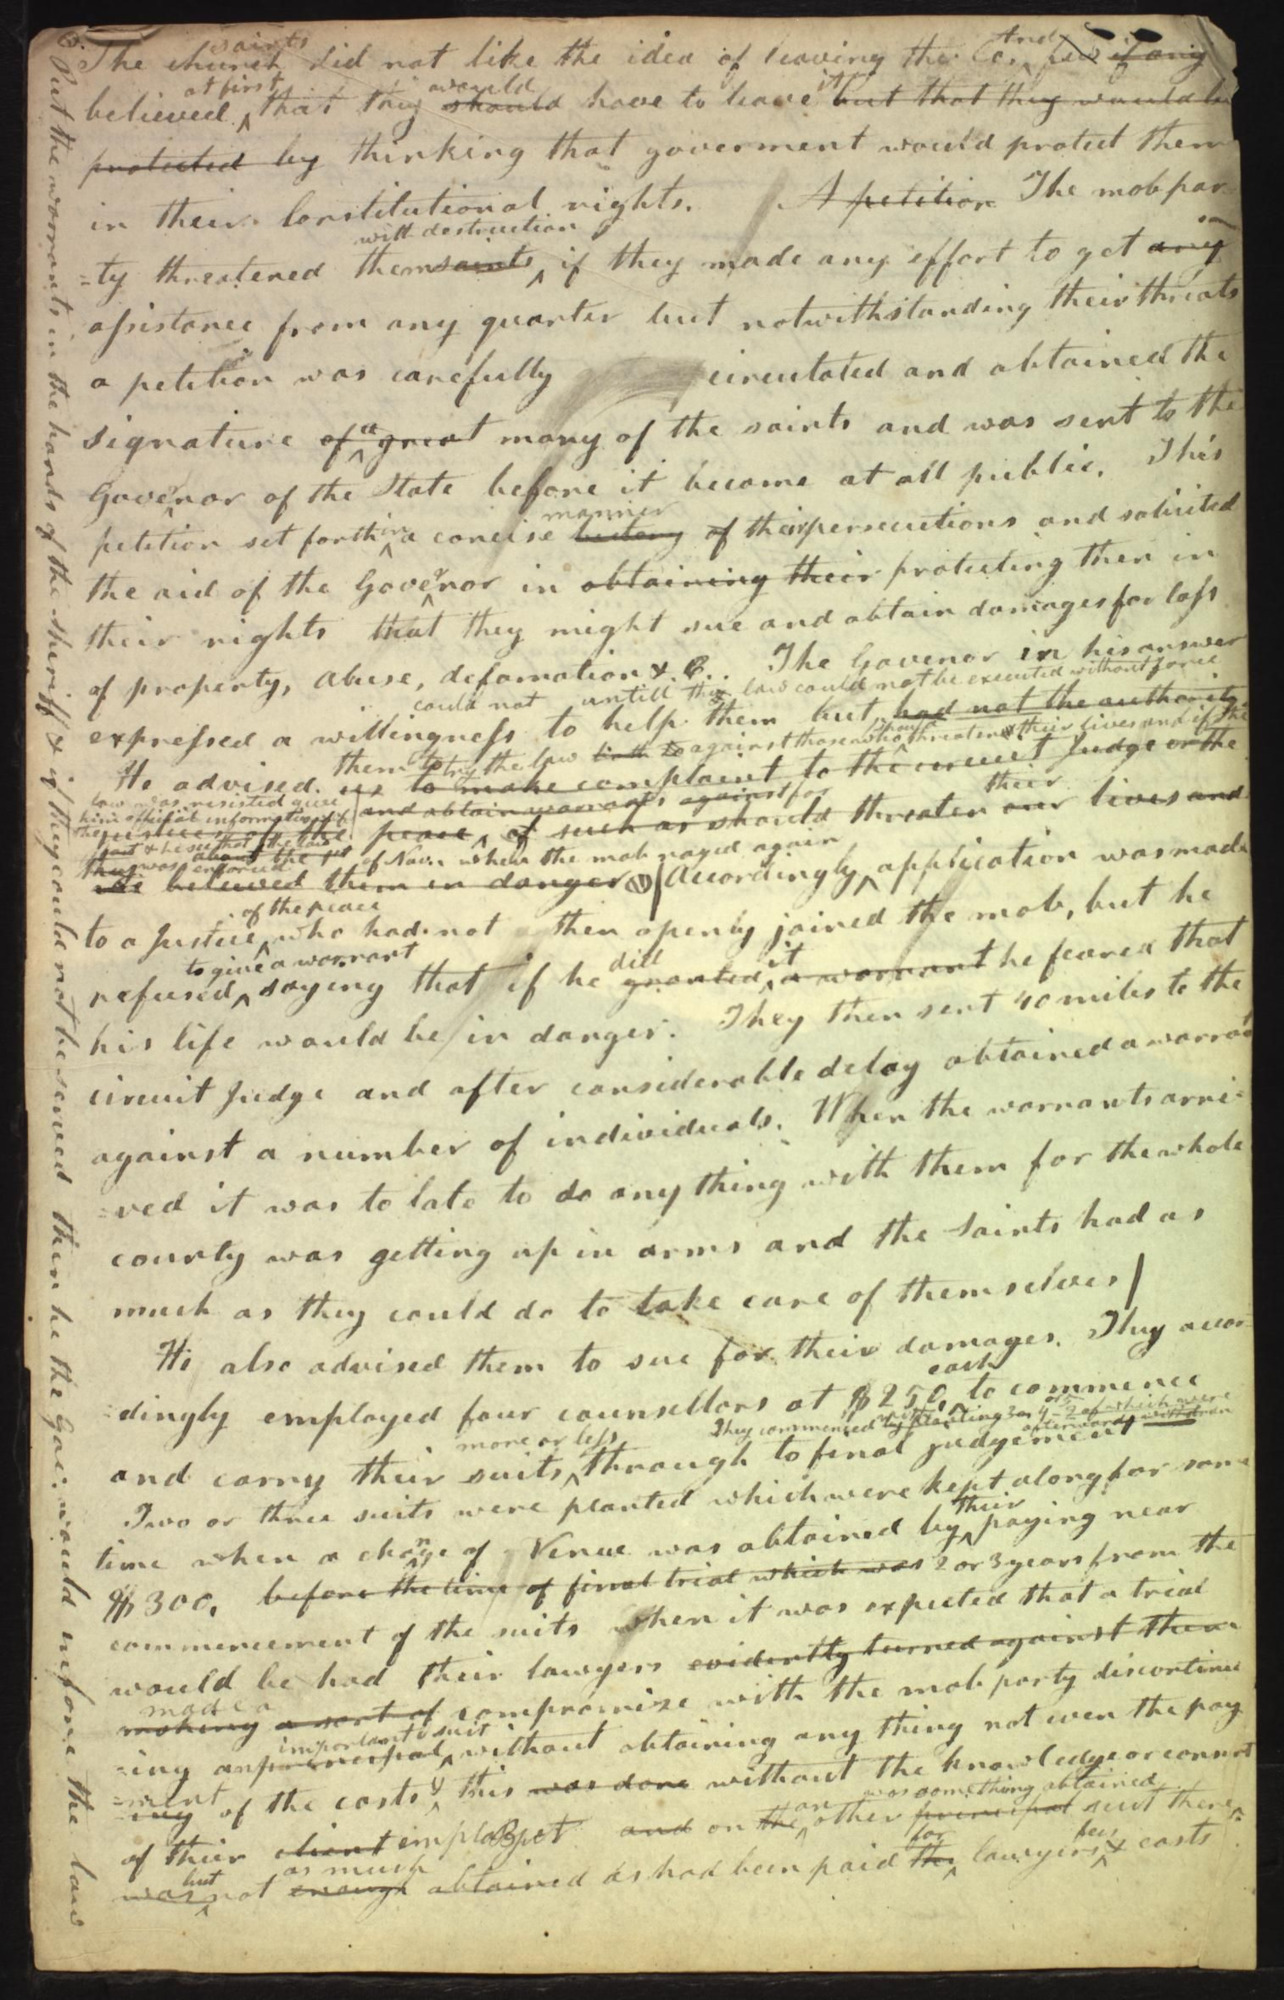 The church saints did not like the idea of leaving the Co. And few if any
believed at first that they should would have to leave it but that they would be
protected by thinking that goverment would protect them
in their Constitutional rights. A petition The mob par
=ty threatened them saints with destruction if they made any effort to get any
assistance from any quarter but notwithstanding their threats
a petition was carefully circulated and obtained the
signature of a great many of the saints and was sent to the
Govenor of the State before it became at all public. This
petition set forth in a concise history manner of their persecutions and solicited
the aid of the Govenor in obtaining their protecting them in
their rights that they might sue and obtain damages for loss
of property, abuse, defamation &. C.. The Govenor in his answer
expressed a willingness to help them but had not the authority
could not untill the law could not be executed without force
He advised us to make complaint to the circuit Judge or the
them to try the law against those who threaten their lives and if the
law was resisted give
him official information of
the justices of the peace, and obtain warrants against for of such as should threaten our their lives and
we believed them in danger
Accordingly of Nov. when the mob raged again application was made
to a Justice of the peace who had not then openly joined the mob, but he
refused to give a warrant saying that if he granted did it a warrant he feared that
his life would be in danger. They then sent 40 miles to the
circuit Judge and after considerable delay obtained a warrant
against a number of individuals. When the warrants arri=
=ved it was to late to do any thing with them for the whole
county was getting up in arms and the Saints had as
much as they could do to take care of themselves
He also advised them to sue for their damages. They accor
=dingly employed four counsellors at $250, each to commence
They commenced by planting 3 or 4 2 of which were afterwards withdrawn
and carry their suits more or less through to final judgement
Two or three suits were planted which were kept along for some
time when a change of Venue was obtained by their paying near
$300, before the time of final trial which was 2 or 3 years from the
commencement of the suits when it was expected that a trial
would be had their lawyers evidently turned against them
making a sort of made a compromise with the mob party discontinu
=ing an principal important suit without obtaining any thing not even the pay
=ing ment of the costs & this was done without the knowledge or consent
of their client employers and on the an other principal suit there was something obtained
was but not enough as much obtained as had been paid the for lawyers fees & costs
But the warrants in the hands of the sheriff & if they could not be served then he the Gov. would inform the law